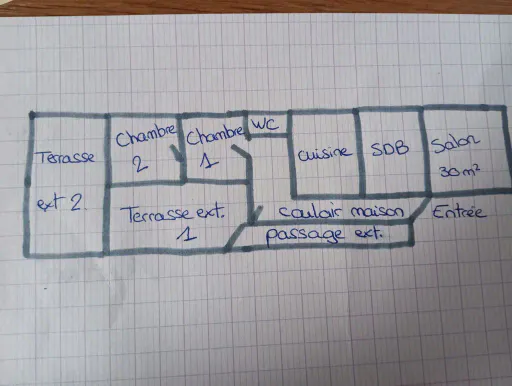 Terasse
ext 2
Chambre
2
Chambre
1
WC
cuisine
SDB
Salon
30 m²
Terrasse ext.
1
couloir maison
Entrée
passage ext.